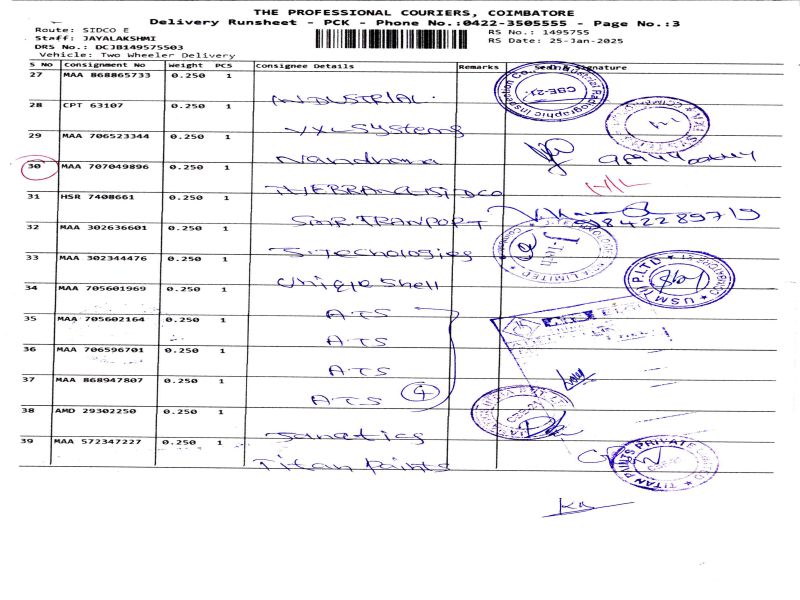 THE PROFESSIONAL COURIERS, COIMBATORE
Delivery Runsheet - PCK - Phone No.:0422-3505555 - Page No.:3
Route: SIDCO E
Staff: JAYALAKSHMI
DRS No.: DCJB149575503
Vehicle: Two Wheeler Delivery
RS No.: 1495755
RS Date: 25-Jan-2025
S No Consignment No Weight PCS Consignee Details Remarks Seal & Signature
27 MAA 868865733 0.250 1
INDUSTRIAL
28 CPT 63107 0.250 1
VXL Systems
29 MAA 706523344 0.250 1
Nandhana
30 MAA 707049896 0.250 1
31 HSR 7408661 0.250 1
SMR TRANPORT 9842289719
32 MAA 302636601 0.250 1
S.i.Tecnologies
33 MAA 302344476 0.250 1
Unique Shell
34 MAA 705601969 0.250 1
ATS
35 MAA 705602164 0.250 1
ATS
36 MAA 706596701 0.250 1
ATS
37 MAA 868947807 0.250 1
ATS 4
38 AMD 29302250 0.250 1
Sanetics
39 MAA 572347227 0.250 1
Titan Paints
CBE-21.
USM TU P.LTD
CBE-21
TITAN PAINTS PRIVATE LIMITED